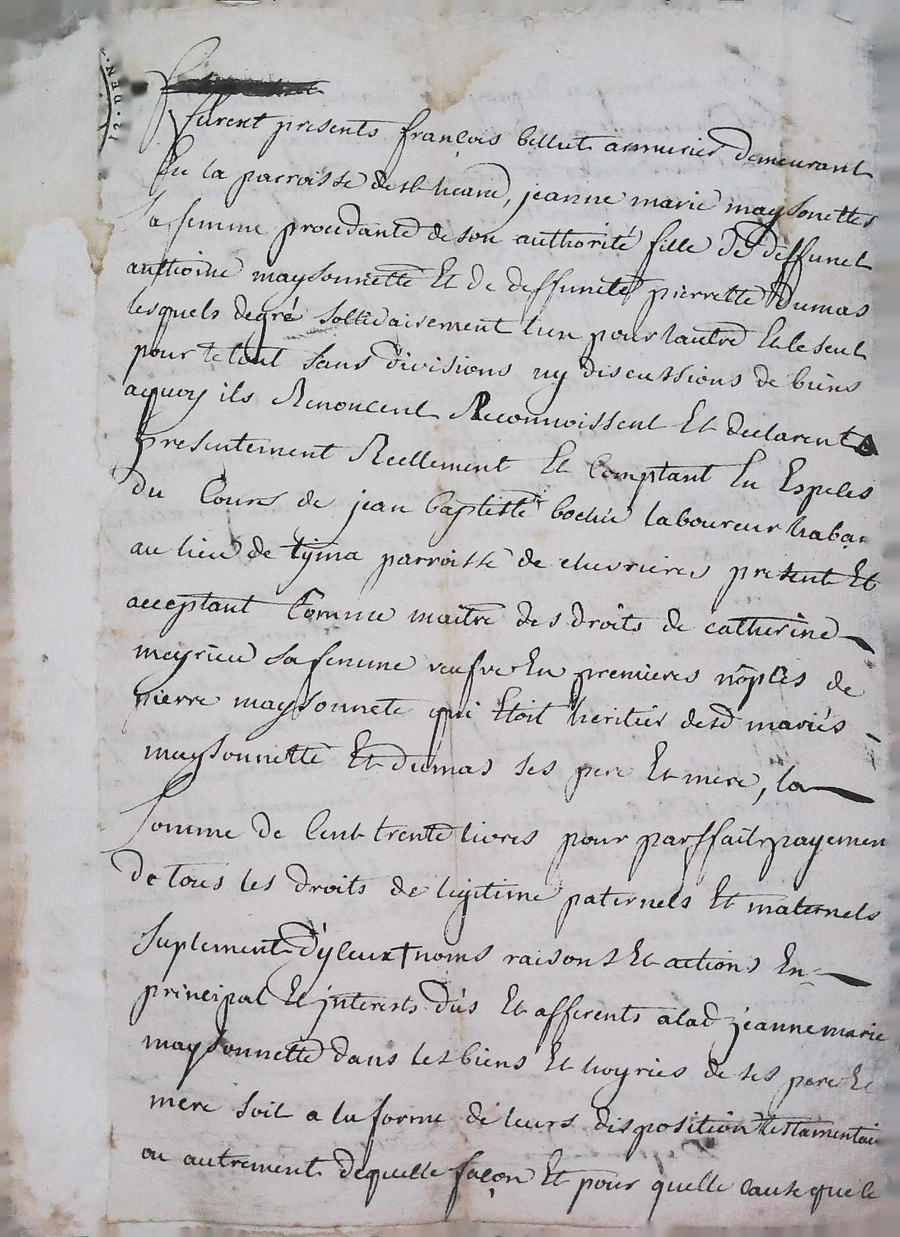 furent presents françois billiut armurier demeurant
En la parroisse de st heand, jeanne marie maysonettes
sa femme procedante de son authorité fille de deffunct
anthoine maysonnette Et de deffuncte pierrette Dumas
lesquels degré sollidairement l'un pour lautre Et le seul
pour le tout sans divisions ny discussions de biens
aquoy ils Renoncent Reconnoissent Et declarent
presentement Reellement Et Comptant En Especes
Du Cours de jean baptiste bochu laboureur haba.
au lieu de parroisse de chevrieres present Et
acceptant Comme maitre des droits de catherine
meyrieu sa femme veufve En premieres nopces de
pierre maysonnete qui Etoit heritier desd mariés
maysonnette Et dumas ses pere Et mere, la
somme de Cent trente livres pour parffait payemen
De tous les droits de legitime paternels Et maternels
suplement D'yceux + noms raisons Et actions En
principal Et jnterests dûs Et afferents alad jeanne marie
maysonnette dans les biens Et hoyries de ses pere Et
mere soit a la forme de leurs disposition testamentai
ou autrement dequelle façon Et pour quelle cause que ce